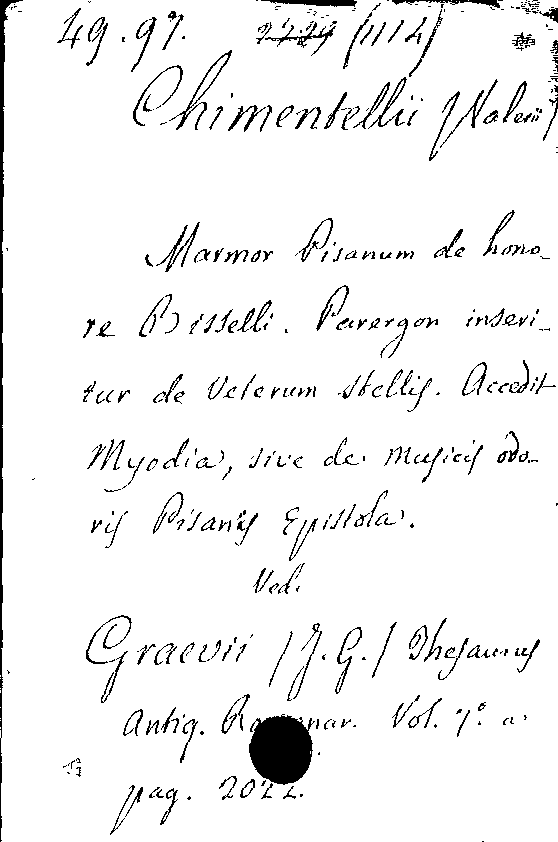 49.97. 2229 (1112)
Chimentellii (Valerii)
Marmor Pisanum de hono-
re Bisselli. Parergon inseri-
tur de Veterum stellis. Accedit
Myodia, sive de Musicis odo-
ris Pisanis Epistola.
Ved.
Graevii (J. G.) Thesaurus
Antiq. Vol. 7.° a
pag. 2022.